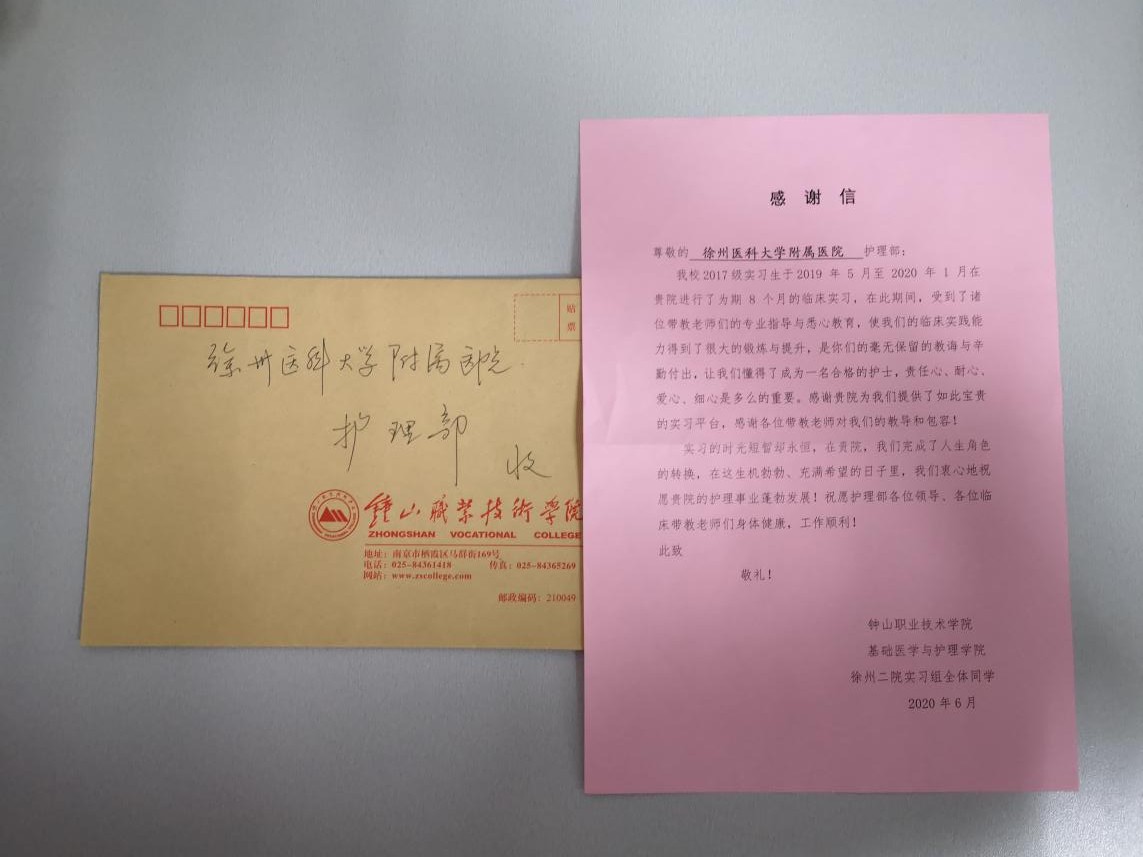 贴
票
徐州医科大学附属医院.
护理部
收
鍾山職業技術學院
ZHONGSHAN VOCATIONAL COLLEGE
地址：南京市栖霞区马群街169号
电话：025-84361418 传真：025-84365269
网站：www.zscollege.com
邮政编码：210049
感 谢 信
尊敬的 徐州医科大学附属医院 护理部：
我校2017级实习生于2019 年 5月至 2020 年 1 月在
贵院进行了为期 8 个月的临床实习，在此期间，受到了诸
位带教老师们的专业指导与悉心教育，使我们的临床实践能
力得到了很大的锻炼与提升，是你们的毫无保留的教诲与辛
勤付出，让我们懂得了成为一名合格的护士，责任心、耐心、
爱心、细心是多么的重要。感谢贵院为我们提供了如此宝贵
的实习平台，感谢各位带教老师对我们的教导和包容！
实习的时光短暂却永恒，在贵院，我们完成了人生角色
的转换，在这生机勃勃、充满希望的日子里，我们衷心地祝
愿贵院的护理事业蓬勃发展！祝愿护理部各位领导、各位临
床带教老师们身体健康，工作顺利！
此致
敬礼！
钟山职业技术学院
基础医学与护理学院
徐州二院实习组全体同学
2020 年 6 月